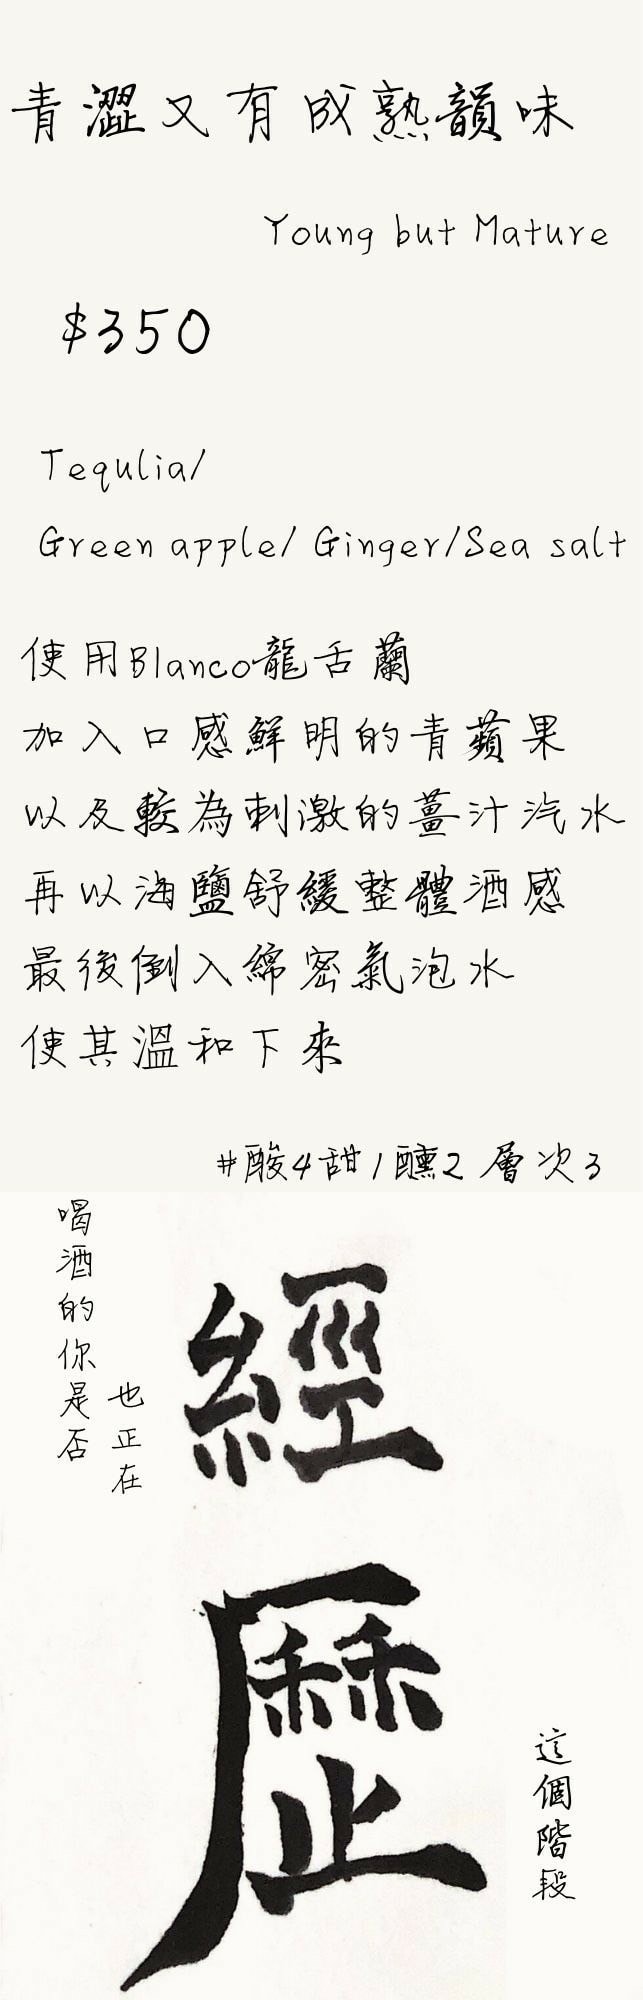 青澀又有成熟韻味
Young but Mature
$350
Tequlia/
Green apple/ Ginger/Sea salt
使用Blanco龍舌蘭
加入口感鮮明的青蘋果
以及較為刺激的薑汁汽水
再以海鹽舒緩整體酒感
最後倒入綿密氣泡水
使其溫和下來
#酸4甜1醺2 層次3
喝酒的你是否
也正在
經歷
這個階段